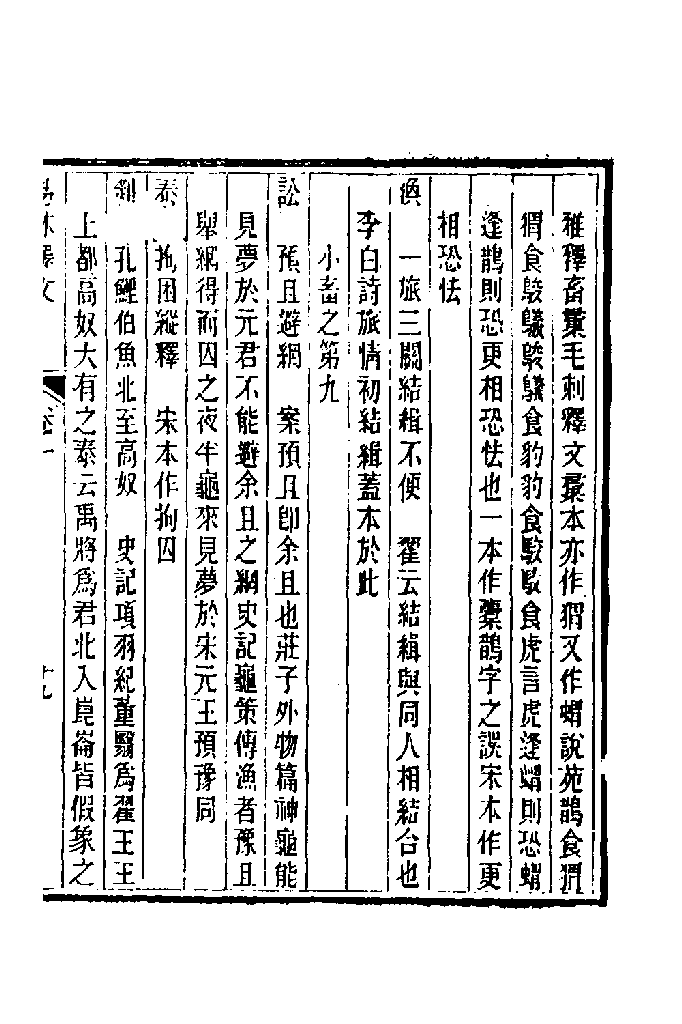 雅釋畜彚毛刺釋文彚本亦作猬又作蝟說苑鵲食猬
猬食鵔鸃鵔鸃食豹豹食駮駮食虎言虎逢蝟則恐蝟
逢鵲則恐更相恐怯也一本作彚鵲字之誤宋本作更
相恐怯
渙　一旅三關結緝不便　翟云結緝與同人相結合也
李白詩旅情初結緝蓋本於此
小畜之第九
訟　預且避網　案預且卽余且也莊子外物篇神龜能
見夢於元君不能避余且之網史記龜策傳漁者豫且
舉網得而囚之夜半龜來見夢於宋元王預豫同
泰　拘囚縱釋　宋本作拘囚
剝　孔鯉伯魚北至高奴　史記項羽紀董翳爲翟王王
上都高奴大有之泰云禹將爲君北入崑崙皆假象之
易林釋文　卷一　十九